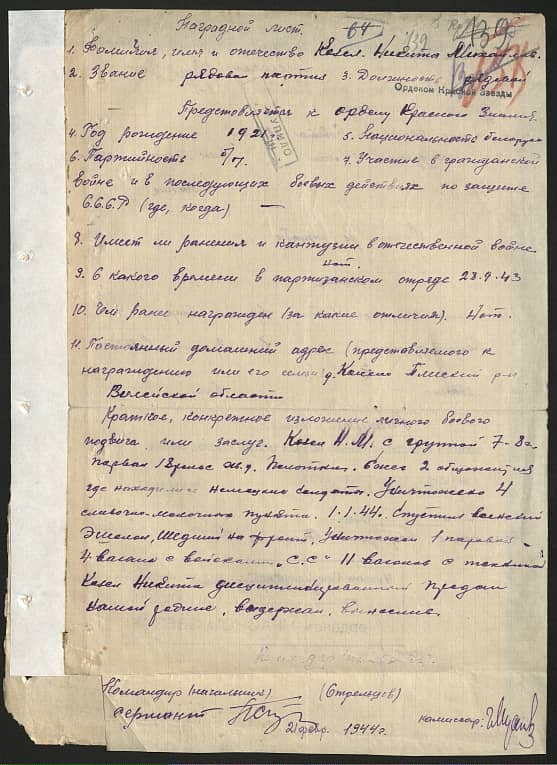 Наградной лист. 64 132 139
1. Фамилия, имя и отчество Козел Никита
2. Звание рядовой партиз 3. Должность рядовой
Орденом Красной Звезды
Представляется к ордену Красного Знамя.
4. Год рождения 1921 5. Национальность белорус
6. Партийность б/п 7. Участие в гражданской
войне и в последующих боевых действиях по защите
С.С.С.Р (где, когда) —
8. Имеет ли ранения и контузии в отечественной войне
нет.
9. С какого времени в партизанском отряде 28.9.43
10. Чем ранее награжден (за какие отличия). Нет.
11. Постоянный домашний адрес (представляемого к
награждению или его семьи д. Плисский р-н
Вилейской области
Краткое, конкретное изложение личного боевого
подвига или заслуг. Козел Н.М. с группой 7-8ч.
ж.д. 2
где находились немецкие солдаты. Уничтожено 4
сливочно-молочных пункта. 1.1.44г. Спустил воинский
Эшелон, Шедший на фронт, Уничтожен 1 паровоз
4 вагона с войсками "С.С" 11 вагонов с техникой
Козел Никита дисциплинированный Предан
нашей родине, выдержан, вынослив.
Командир (начальник) (Стрельцов)
сержант
21 февр. 1944г. комиссар: